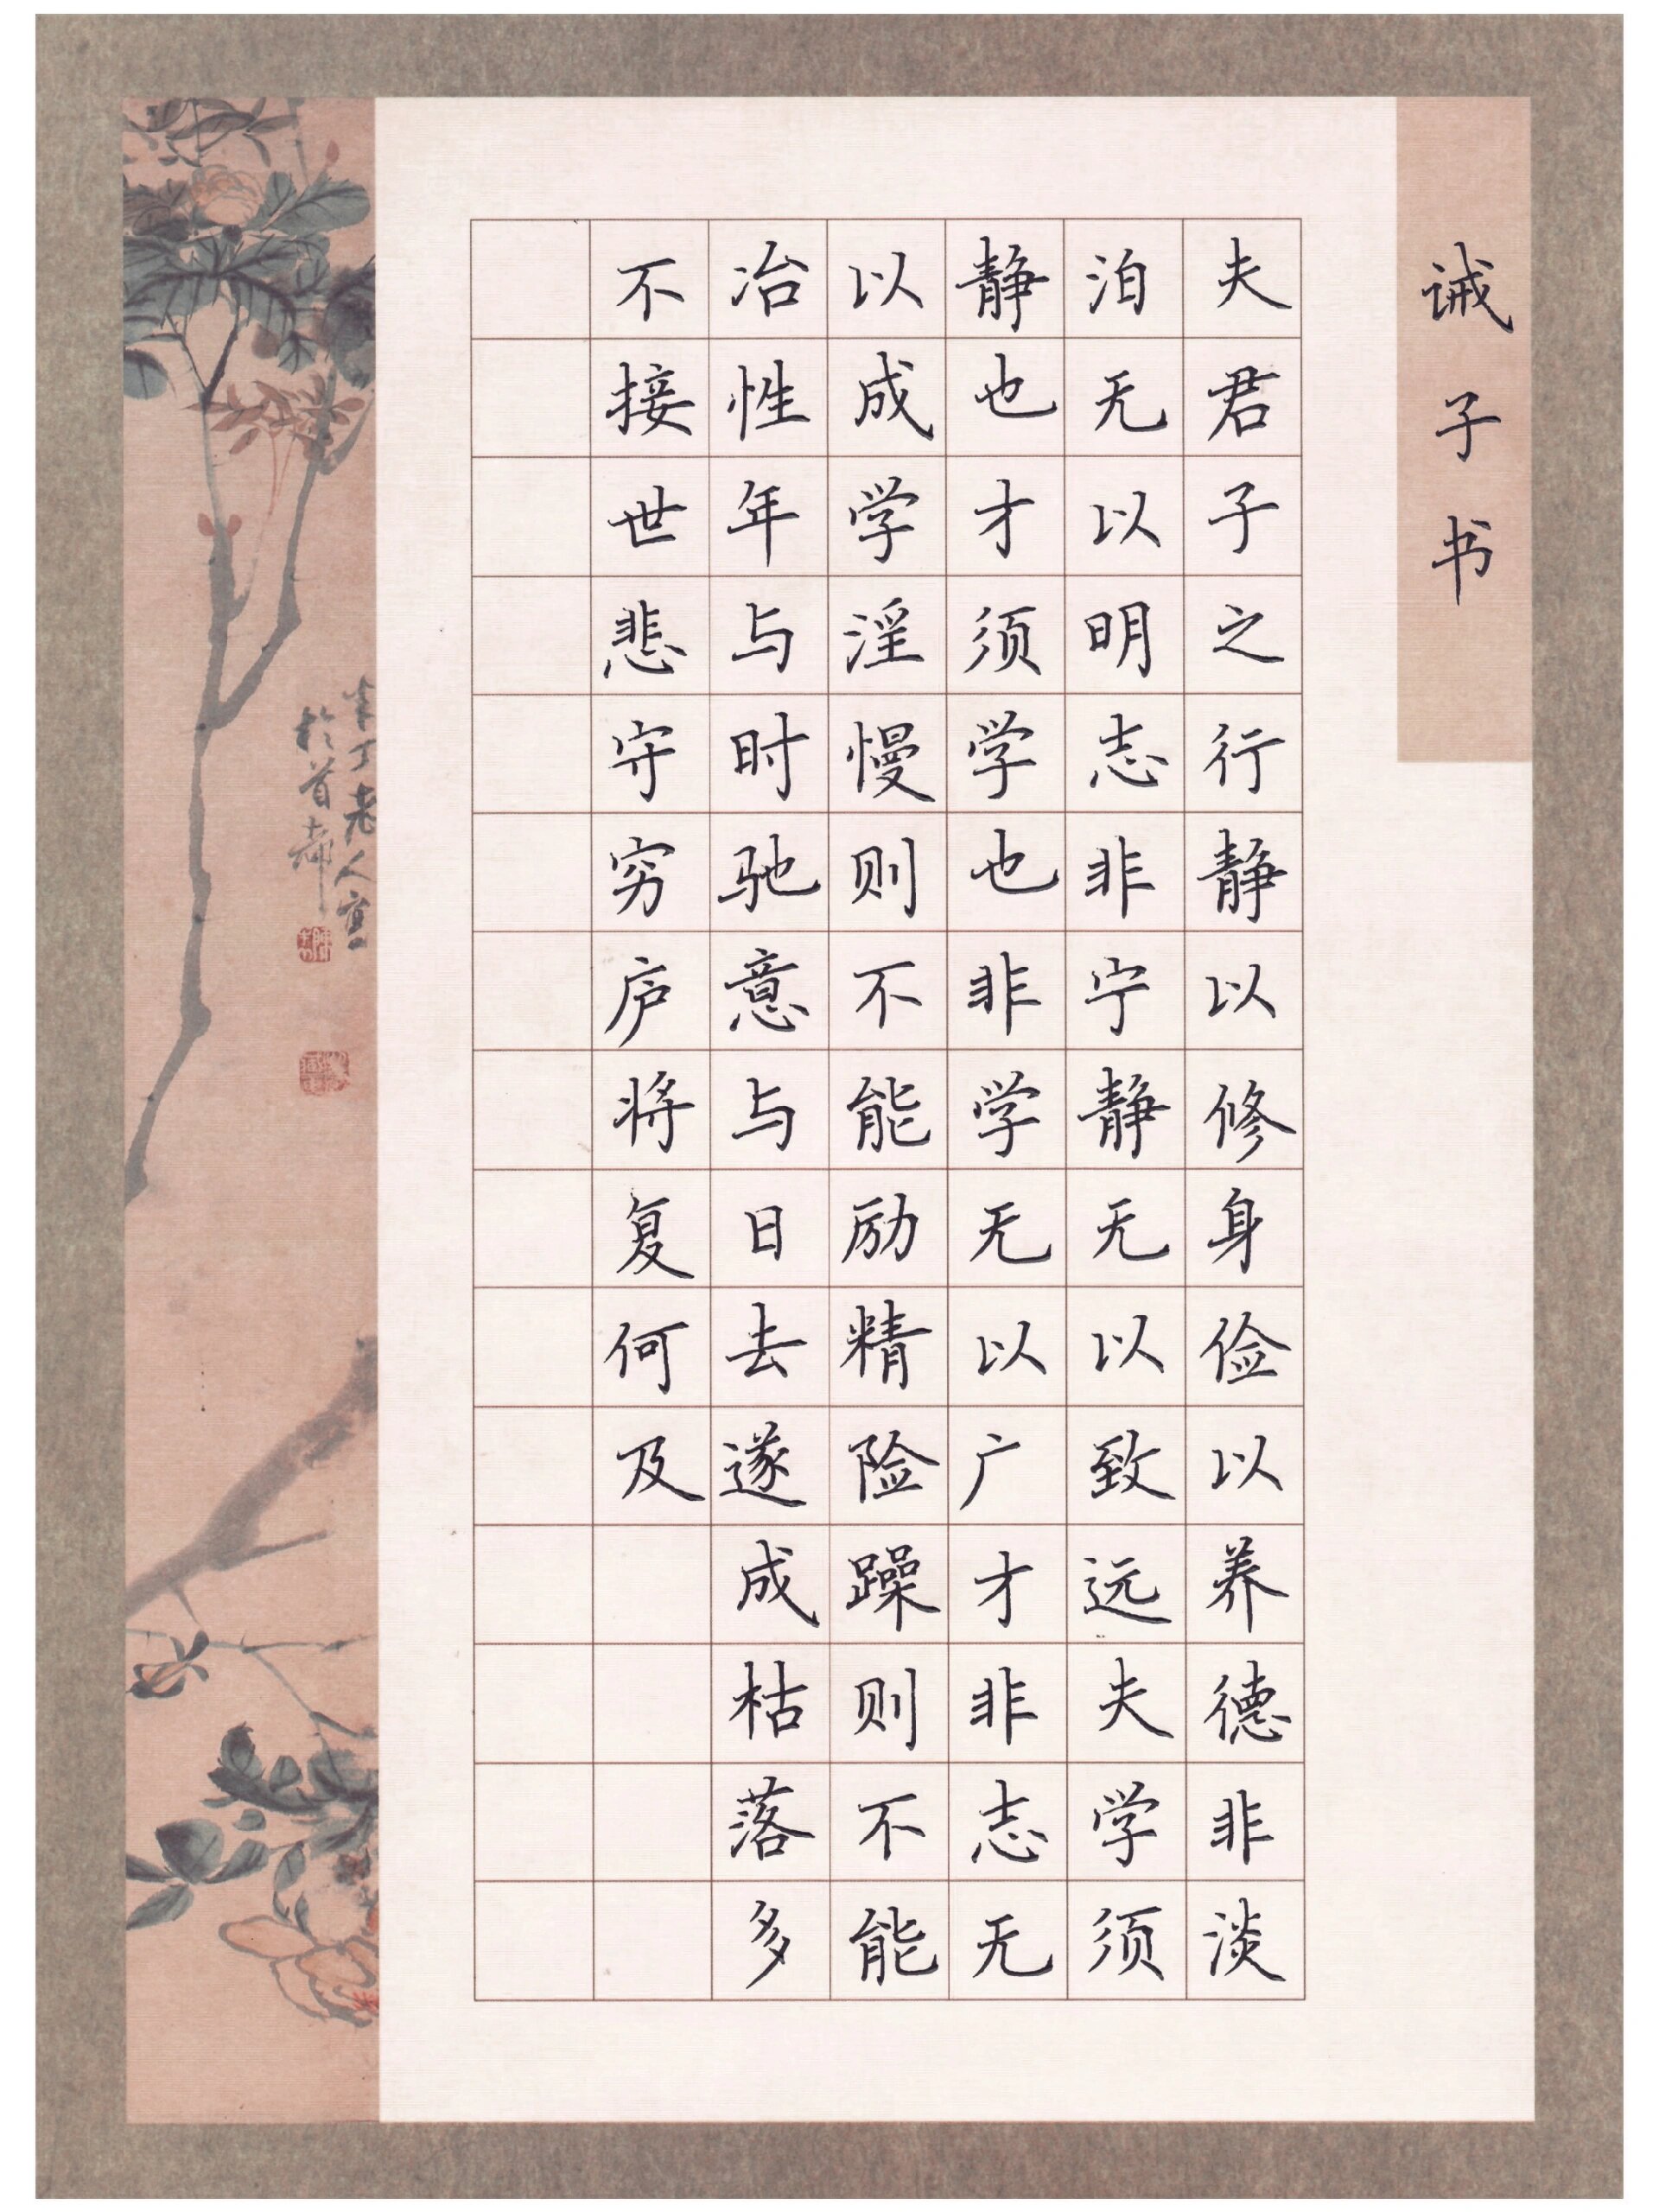 诫子书
夫君子之行静以修身俭以养德非淡
泊无以明志非宁静无以致远夫学须
静也才须学也非学无以广才非志无
以成学淫慢则不能励精险躁则不能
冶性年与时驰意与日去遂成枯落多
不接世悲守穷庐将复何及
半丁老人
於首都